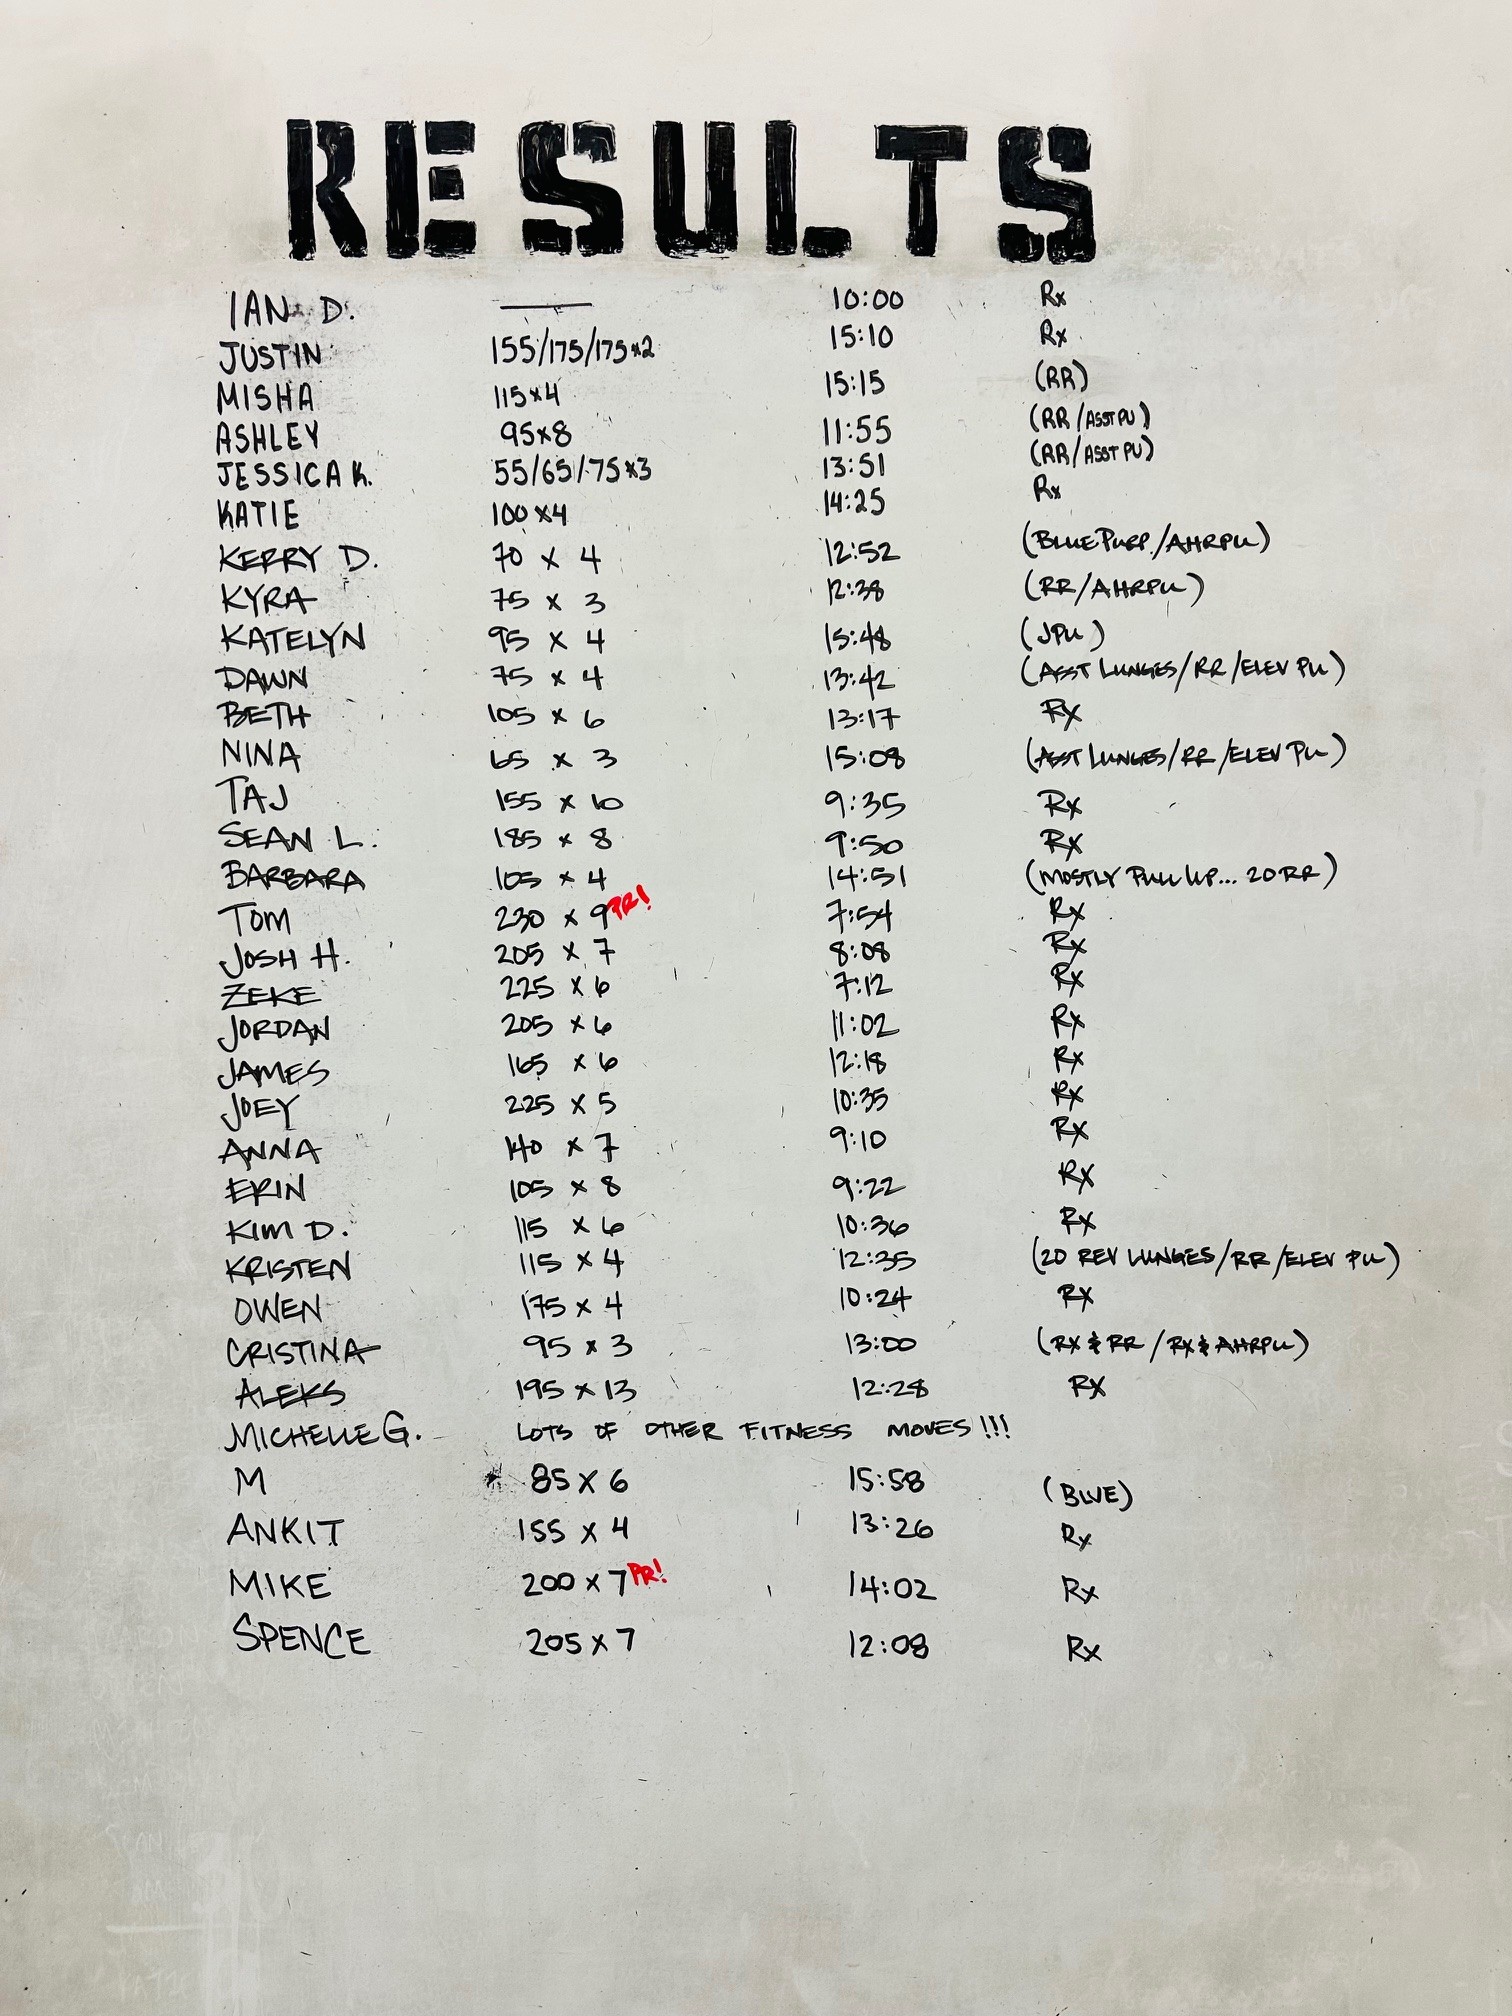 RESULTS
IAN D. —— 10:00 Rx
JUSTIN 155/175/175x2 15:10 Rx
MISHA 115x4 15:15 (RR)
ASHLEY 95x8 11:55 (RR/ASSTPU)
JESSICA K. 55/65/75x3 13:51 (RR/ASSTPU)
KATIE 100x4 14:25 Rx
KERRY D. 70 x 4 12:52 (BLUE PURP./AHRPU)
KYRA 75 x 3 12:38 (RR/AHRPU)
KATELYN 95 x 4 15:48 (JPU)
DAWN 75 x 4 13:42 (ASST LUNGES/RR/ELEV PU)
BETH 105 x 6 13:17 RX
NINA 65 x 3 15:08 (ASST LUNGES/RR/ELEV PU)
TAJ 155 x 10 9:35 Rx
SEAN L. 185 x 8 9:50 Rx
BARBARA 105 x 4 14:51 (MOSTLY PULL UP... 20 RR)
TOM 230 x 9 PR! 7:54 Rx
JOSH H. 205 x 7 8:08 Rx
ZEKE 225 x 6 7:12 Rx
JORDAN 205 x 6 11:02 Rx
JAMES 165 x 6 12:18 Rx
JOEY 225 x 5 10:35 Rx
ANNA 140 x 7 9:10 Rx
ERIN 105 x 8 9:22 RX
KIM D. 115 x 6 10:36 RX
KRISTEN 115 x 4 12:35 (20 REV LUNGES/RR/ELEV PU)
OWEN 175 x 4 10:24 RX
CRISTINA 95 x 3 13:00 (RX & RR / RX & AHRPU)
ALEKS 195 x 13 12:28 RX
MICHELLE G. LOTS OF OTHER FITNESS MOVES!!!
M 85 x 6 15:58 (BLUE)
ANKIT 155 x 4 13:26 Rx
MIKE 200 x 7 PR! 14:02 Rx
SPENCE 205 x 7 12:08 Rx